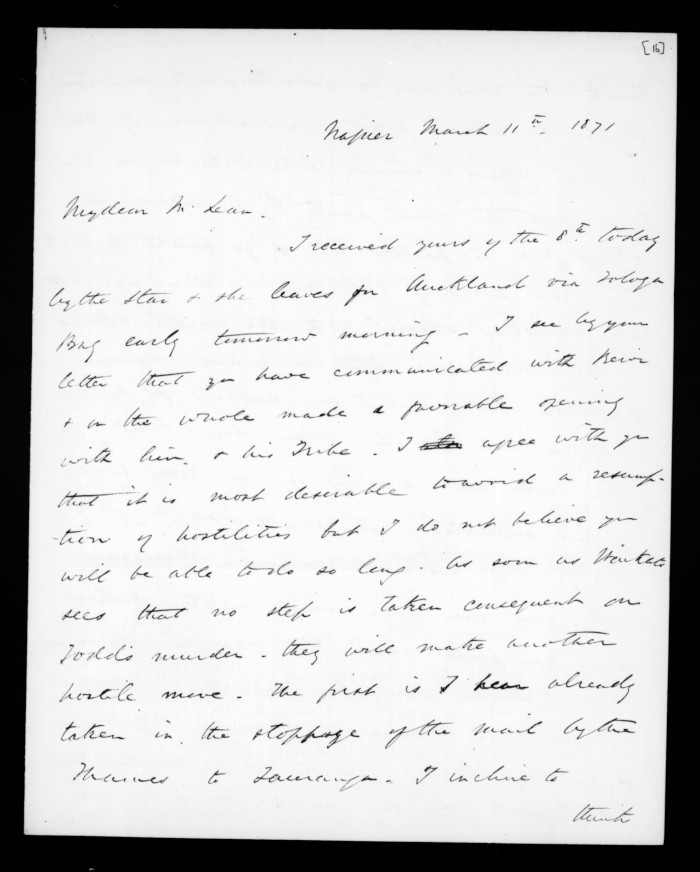 [16]
Napier March 11th. 1871
My dear McLean.
I received yours of the 8th. today
by the Star & she leaves for Auckland via Tologa
Bay early tomorrow morning - I see by your
letter that you have communicated with Rewi
& on the whole made a favorable opening
with him. & his Tribe. I also agree with you
that it is most desirable to avoid a resump-
-tion of hostilities but I do not believe you
will be able to do so long. As soon as Waikato
sees that no step is taken consequent on
Todds murder - they will make another
hostile move. The first is I hear already
taken in the stoppage of the mail by the
Thames to Tauranga. I incline to
think